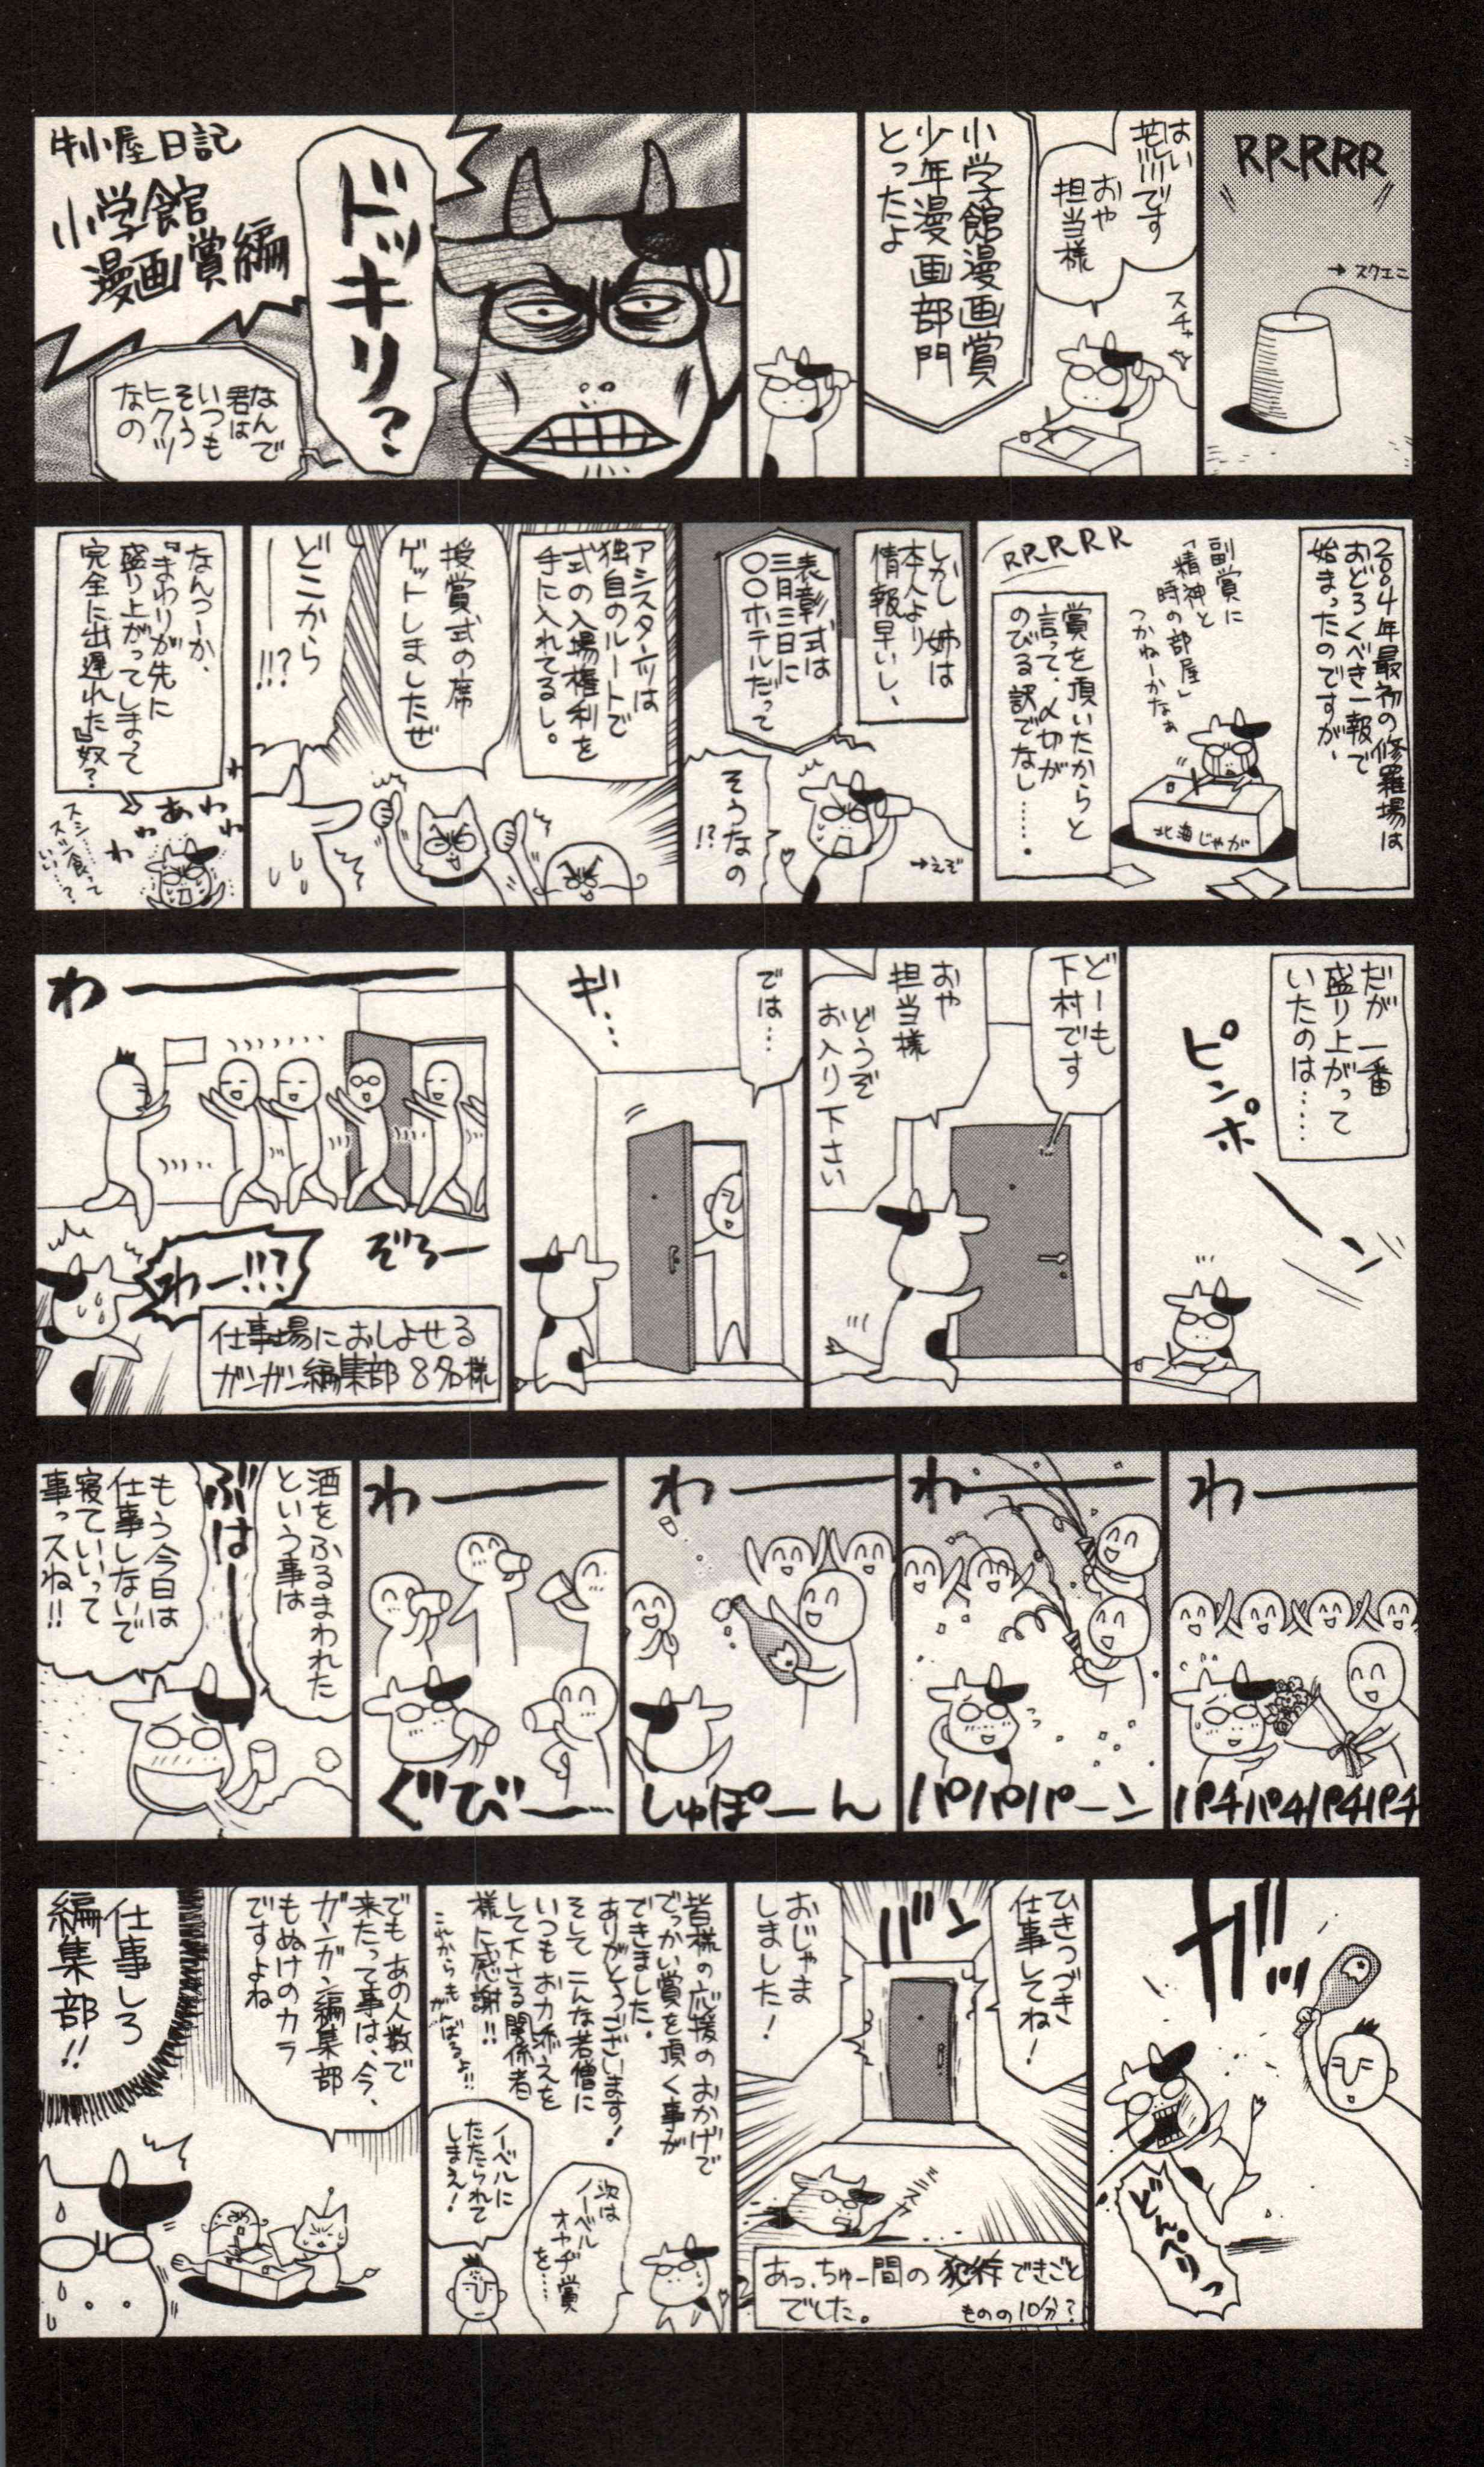 RRRRR
→スクエニ
はい
荒川です
おや
担当様
スチャ
小学館漫画賞
少年漫画部門
とったよ
ドッキリ?
なんで
君は
いつも
そう
ヒクツ
なの
牛小屋日記
小学館
漫画賞編
2004年最初の修羅場は
おどろくべき一報で
始まったのですが、
副賞に
「精神と
時の部屋」
つかねーかなぁ
北海じゃが
RRRRR
賞を頂いたからと
言って、〆切が
のびる訳でなし……。
しかし 姉は
本人より
情報早いし、
表彰式は
三月三日に
〇〇ホテルだって
→えぞ
そうなの
!?
アシスタンツは
独自のルートで
式の入場権利を
手に入れてるし。
授賞式の席
ゲットしましたぜ
どこから
ー!!?
なんつーか、
『まわりが先に
盛り上がってしまって
完全に出遅れた』奴?
あわわ
わわ
スシ…
スシ食って
いい…?
だが 一番
盛り上がって
いたのは……
ピンポーン
どーも
下村です
おや
担当様
どうぞ
お入り下さい
では…
ギ…
わー
ぞろー
わー!!!?
仕事場におしよせる
ガンガン編集部8名様
わー
パチパチパチパチ
わー
パパパーン
わー
しゅぽーん
わー
ぐびー…
酒をふるまわれた
という事は
ぶはー
もう今日は
仕事しないで
寝ていいって
事っスね!!
ガッ
どんぺりっ
ひきつづき
仕事してね!
バン
おじゃま
しました!
あっちゅー間の犯行できごと
でした。
ものの10分?
皆様の応援のおかげで
でっかい賞を頂く事が
できました。
ありがとうございます!
そして こんな若僧に
いつもお力添えを
して下さる関係者
様に感謝!!
これからも
がんばるよ!!
次は
ノーベル
オヤヂ賞
を……
ノーベルに
たたられて
しまえ!
でも あの人数で
来たって事は、今、
ガンガン編集部
もぬけのカラ
ですよね
仕事しろ
編集部!!